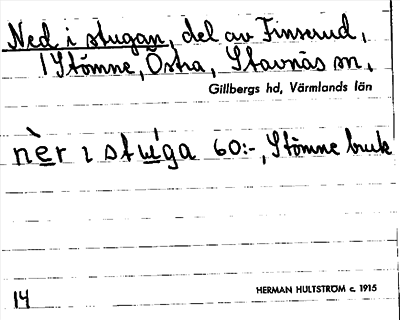 Ned i stugan, del av Finserud,
1 Stömne, Östra, Stavnäs sn,
Gillbergs hd, Värmlands län
nè̱r ɩ stú̱ga 60:-, Stömne bruk
14
HERMAN HULTSTRÖM c. 1915